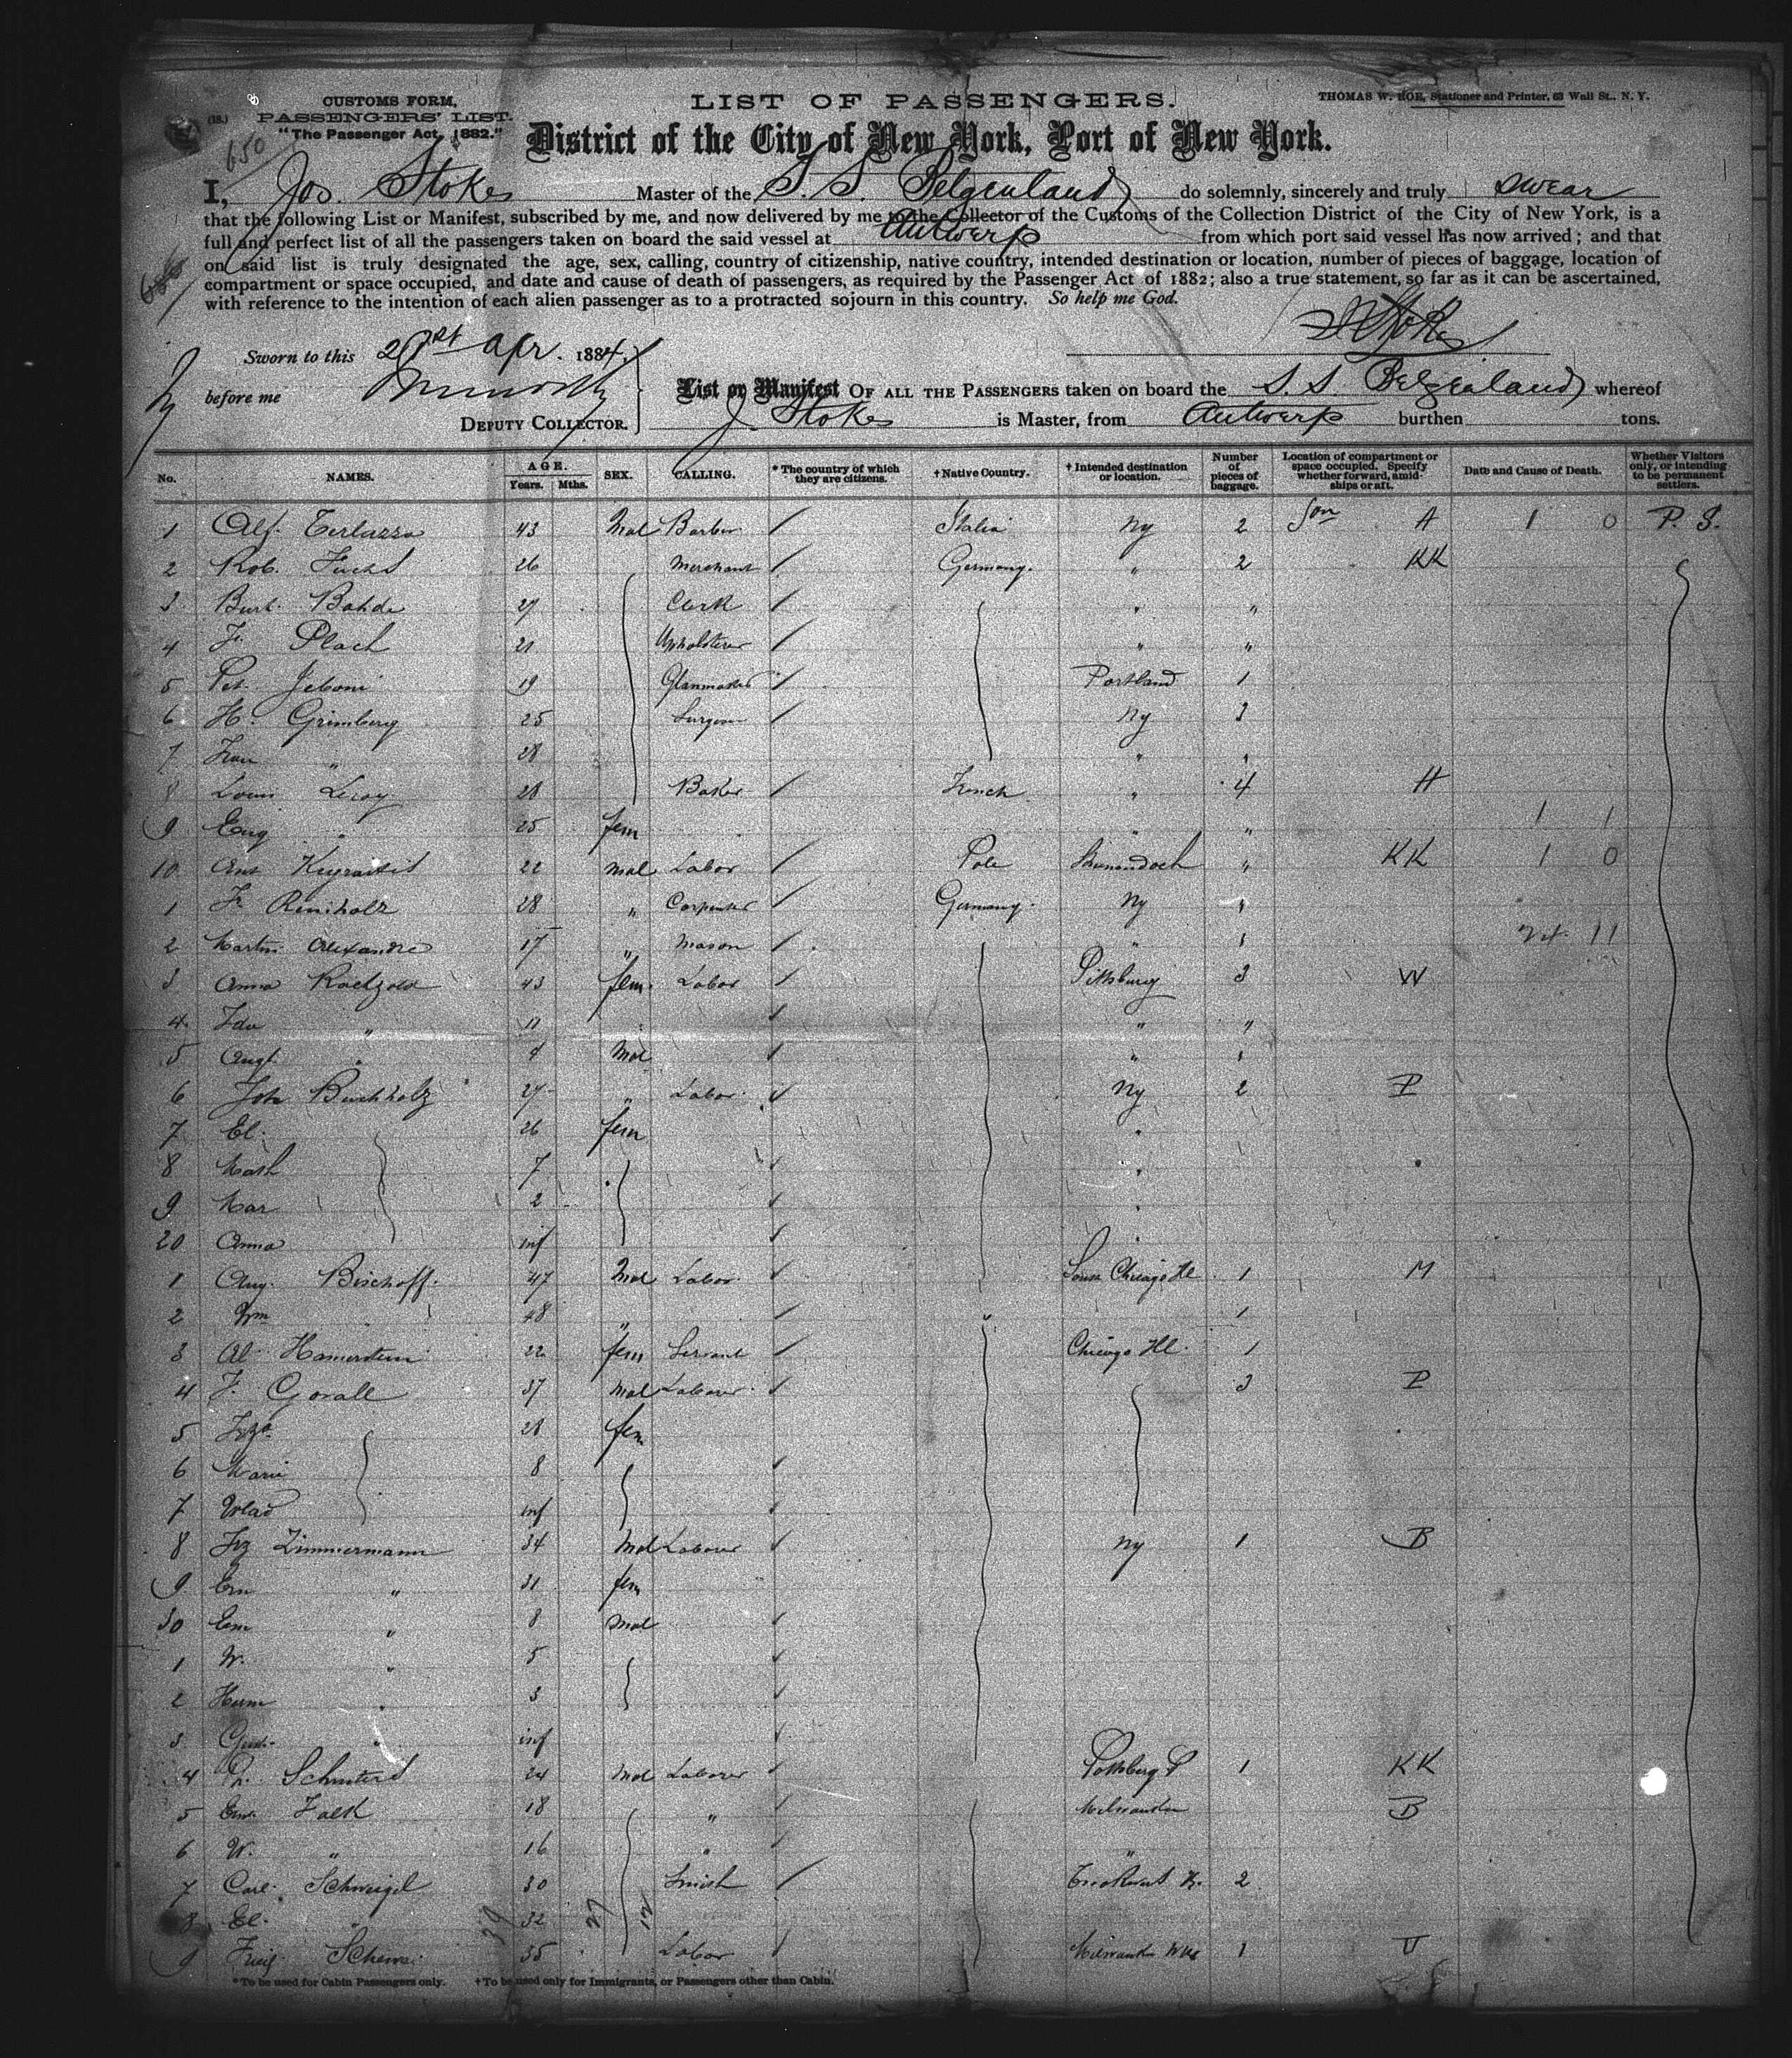 CUSTOMS FORM,
(18.) PASSENGERS' LIST.
"The Passenger Act, 1882."
650
LIST OF PASSENGERS.
THOMAS W. HOE, Stationer and Printer, 63 Wall St., N. Y.
District of the City of New York, Port of New York.
I, Jos. Stokes Master of the S. S. Belgenland do solemnly, sincerely and truly swear
that the following List or Manifest, subscribed by me, and now delivered by me to the Collector of the Customs of the Collection District of the City of New York, is a
full and perfect list of all the passengers taken on board the said vessel at Antwerp from which port said vessel has now arrived; and that
on said list is truly designated the age, sex, calling, country of citizenship, native country, intended destination or location, number of pieces of baggage, location of
compartment or space occupied, and date and cause of death of passengers, as required by the Passenger Act of 1882; also a true statement, so far as it can be ascertained,
with reference to the intention of each alien passenger as to a protracted sojourn in this country. So help me God.
J Stokes
Sworn to this 21st Apr. 1884,
before me
DEPUTY COLLECTOR.
List or Manifest OF ALL THE PASSENGERS taken on board the S. S. Belgenland whereof
J. Stokes is Master, from Antwerp burthen tons.
No. NAMES. AGE. Years. Mths. SEX. CALLING. * The country of which they are citizens. † Native Country. † Intended destination or location. Number of pieces of baggage. Location of compartment or space occupied. Specify whether forward, amidships or aft. Date and Cause of Death. Whether Visitors only, or intending to be permanent settlers.
1 Alf. Terlazzo 43 Mal Barber / Italia Ny 2 A 1 0 P. S.
2 Rob. Fuchs 26 Merchant / Germany. " 2 KK
3 Bohde 27 Clerk / " "
4 F. Plach 21 Upholsterer / " "
5 Pet. 19 / Portland 1
6 H. Grimberg 25 Surgeon / Ny 3
7 Frau " 28 " "
8 Louis Leroy 28 Baker / French " 4 H
9 Eug " 25 fem " " 1 1
10 Ant 22 mal Labor / Pole Shenandoah " KK 1 0
1 Fr Reinholz 28 " Carpenter / Germany. Ny "
2 Martin Alexandre 17 " Mason / " 1 11
3 Anna 43 fem. Labor / Pittsburg 3 W
4 Ida " 11 / " "
5 Augt. " 4 Mal / " "
6 Joh Buchholz 27 " Labor. / Ny 2 P
7 El. 26 fem "
8 Math 7 / "
9 Mar 2 / "
20 Anna inf / "
1 Aug. Bischoff. 47 Mal Labor. / Chicago Ill 1 M
2 Wm 48 " / 1
3 Al. Hamerstein 22 fem Servant / Chicago Ill. 1
4 F. Gorall 37 Mal Laborer. / 3 P
5 28 fem
6 Marie 8 /
7 Wlad inf /
8 Frz Zimmermann 34 Mal Laborer / Ny 1 B
9 Ern " 31 fem
30 Em " 8 Mal /
1 W. " 5 /
2 Herm " 3 /
3 Gust. " inf /
4 24 Mal Laborer / 1 KK
5 Em. Falk 18 " / Milwaukee B
6 W. " 16 " / "
7 Carl. Schweigel 30 Smith / 2
8 El. " 32
9 35 Labor / Milwaukee Wis 1 U
27 12
* To be used for Cabin Passengers only. † To be used only for Immigrants, or Passengers other than Cabin.